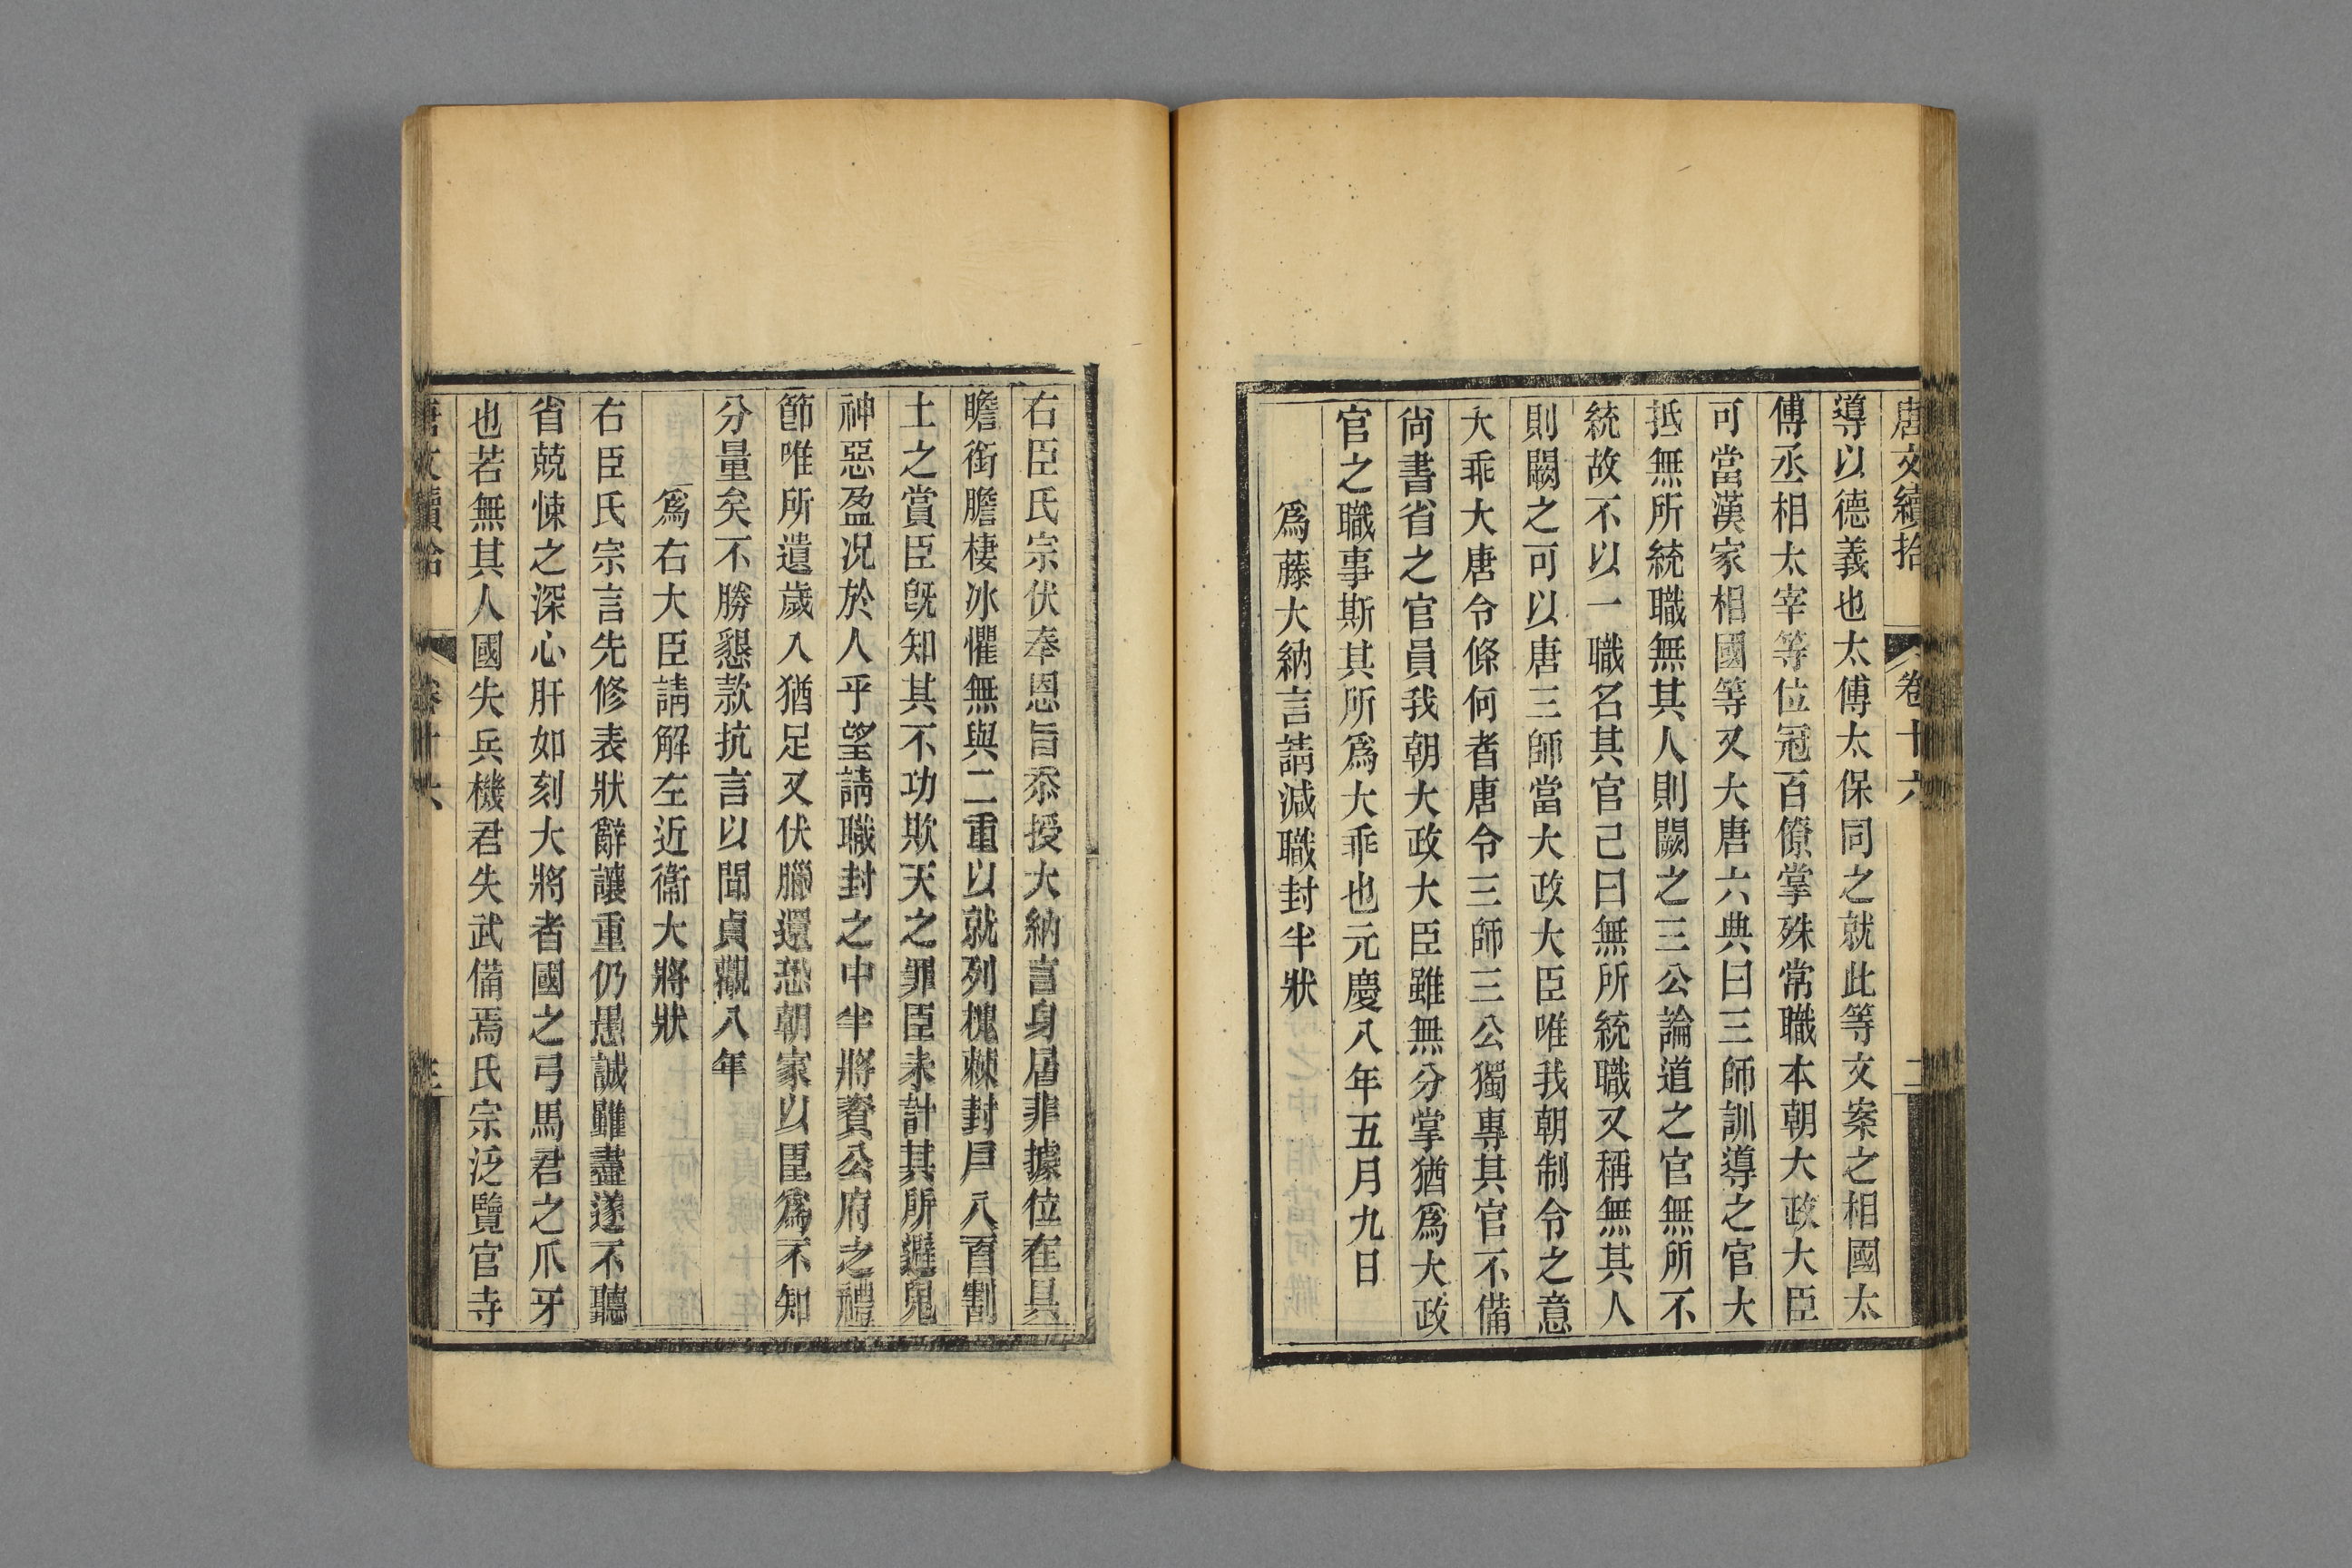 唐文續拾 卷十六 二
導以德義也太傅太保同之就此等文案之相國太
傅丞相太宰等位冠百僚掌殊常職本朝大政大臣
可當漢家相國等又大唐六典曰三師訓導之官大
抵無所統職無其人則闕之三公論道之官無所不
統故不以一職名其官己曰無所統職又稱無其人
則闕之可以唐三師當大政大臣唯我朝制令之意
大乖大唐令條何者唐令三師三公獨專其官不備
尚書省之官員我朝大政大臣雖無分掌猶爲大政
官之職事斯其所爲大乖也元慶八年五月九日
爲藤大納言請減職封半狀
右臣氏宗伏奉恩旨忝授大納言身居非據位在具
瞻銜膽棲冰懼無與二重以就列槐棘封戶八百割
土之賞臣旣知其不功欺天之罪臣未計其所避鬼
神惡盈况於人乎望請職封之中半將資公府之禮
節唯所遺歲入猶足又伏臘還恐朝家以臣爲不知
分量矣不勝懇款抗言以聞貞觀八年
爲右大臣請解左近衞大將狀
右臣氏宗言先修表狀辭讓重仍愚誠雖盡遂不聽
省兢悚之深心肝如刻大將者國之弓馬君之爪牙
也若無其人國失兵機君失武備焉氏宗泛覽官寺
唐文續拾 卷十六